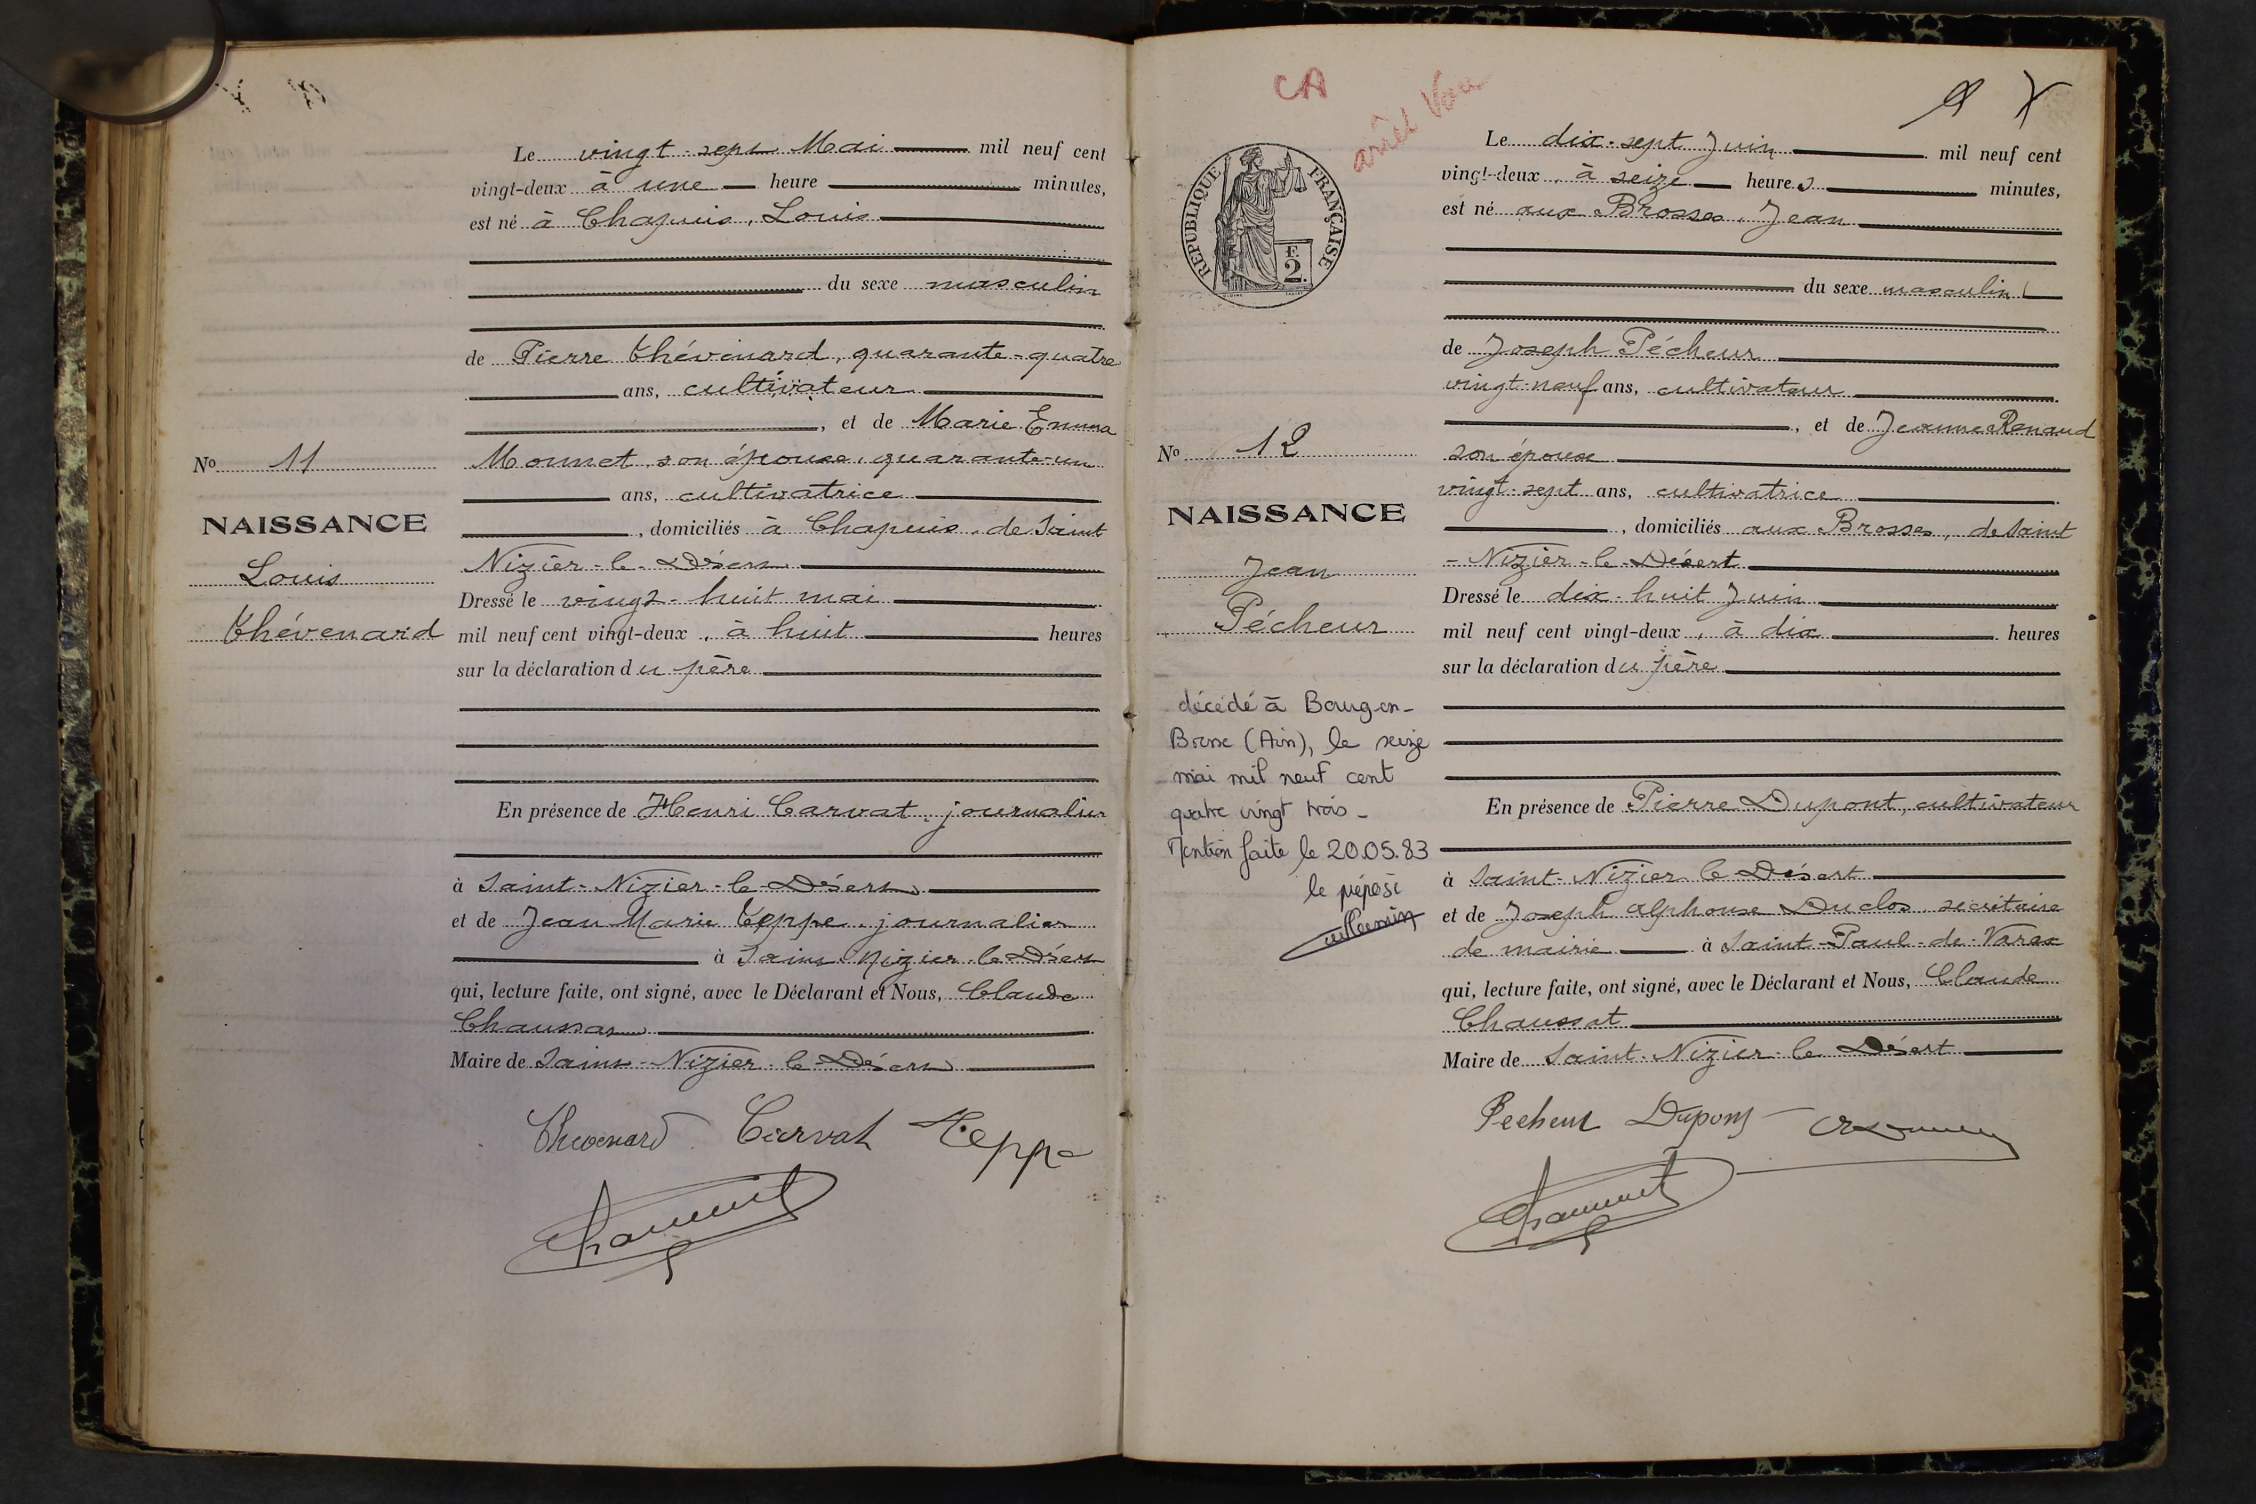 Le vingt-sept Mai mil neuf cent
vingt-deux à une heure minutes,
est né à Chapuis, Louis
du sexe masculin
de Pierre Thévenard, quarante-quatre
ans, cultivateur
, et de Marie Emma
Monnet, son épouse, quarante-un
ans, cultivatrice
, domiciliés à Chapuis, de Saint
Nizier-le-Désert
Dressé le vingt-huit mai
mil neuf cent vingt-deux, à huit heures
sur la déclaration du père
En présence de Henri Carvat, journalier
à Saint-Nizier-le-Désert
et de Jean Marie Teppe, journalier
à Saint Nizier-le-Désert
qui, lecture faite, ont signé, avec le Déclarant et Nous, Claude
Chaussat
Maire de Saint-Nizier-le-Désert
Thévenard Carvat Teppe
Chaussat
No 11
NAISSANCE
Louis
Thévenard
CA
RÉPUBLIQUE FRANÇAISE
F.
2
Le dix-sept Juin mil neuf cent
vingt-deux, à seize heures minutes,
est né aux Brosses, Jean
du sexe masculin
de Joseph Pécheur
vingt-neuf ans, cultivateur
, et de Jeanne Renaud
son épouse
vingt-sept ans, cultivatrice
, domiciliés aux Brosses, de Saint
-Nizier-le-Désert
Dressé le dix-huit Juin
mil neuf cent vingt-deux, à dix heures
sur la déclaration du père
En présence de Pierre Dupont, cultivateur
à Saint-Nizier le Désert
et de Joseph Alphonse Duclos secrétaire
de mairie à Saint-Paul-de-Varax
qui, lecture faite, ont signé, avec le Déclarant et Nous, Claude
Chaussat
Maire de Saint-Nizier-le Désert
Pecheur Dupont
Chaussat
No 12
NAISSANCE
Jean
Pécheur
décédé à Bourg-en-
Bresse (Ain), le seize
mai mil neuf cent
quatre vingt trois-
Mention faite le 20.05.83
le préposé